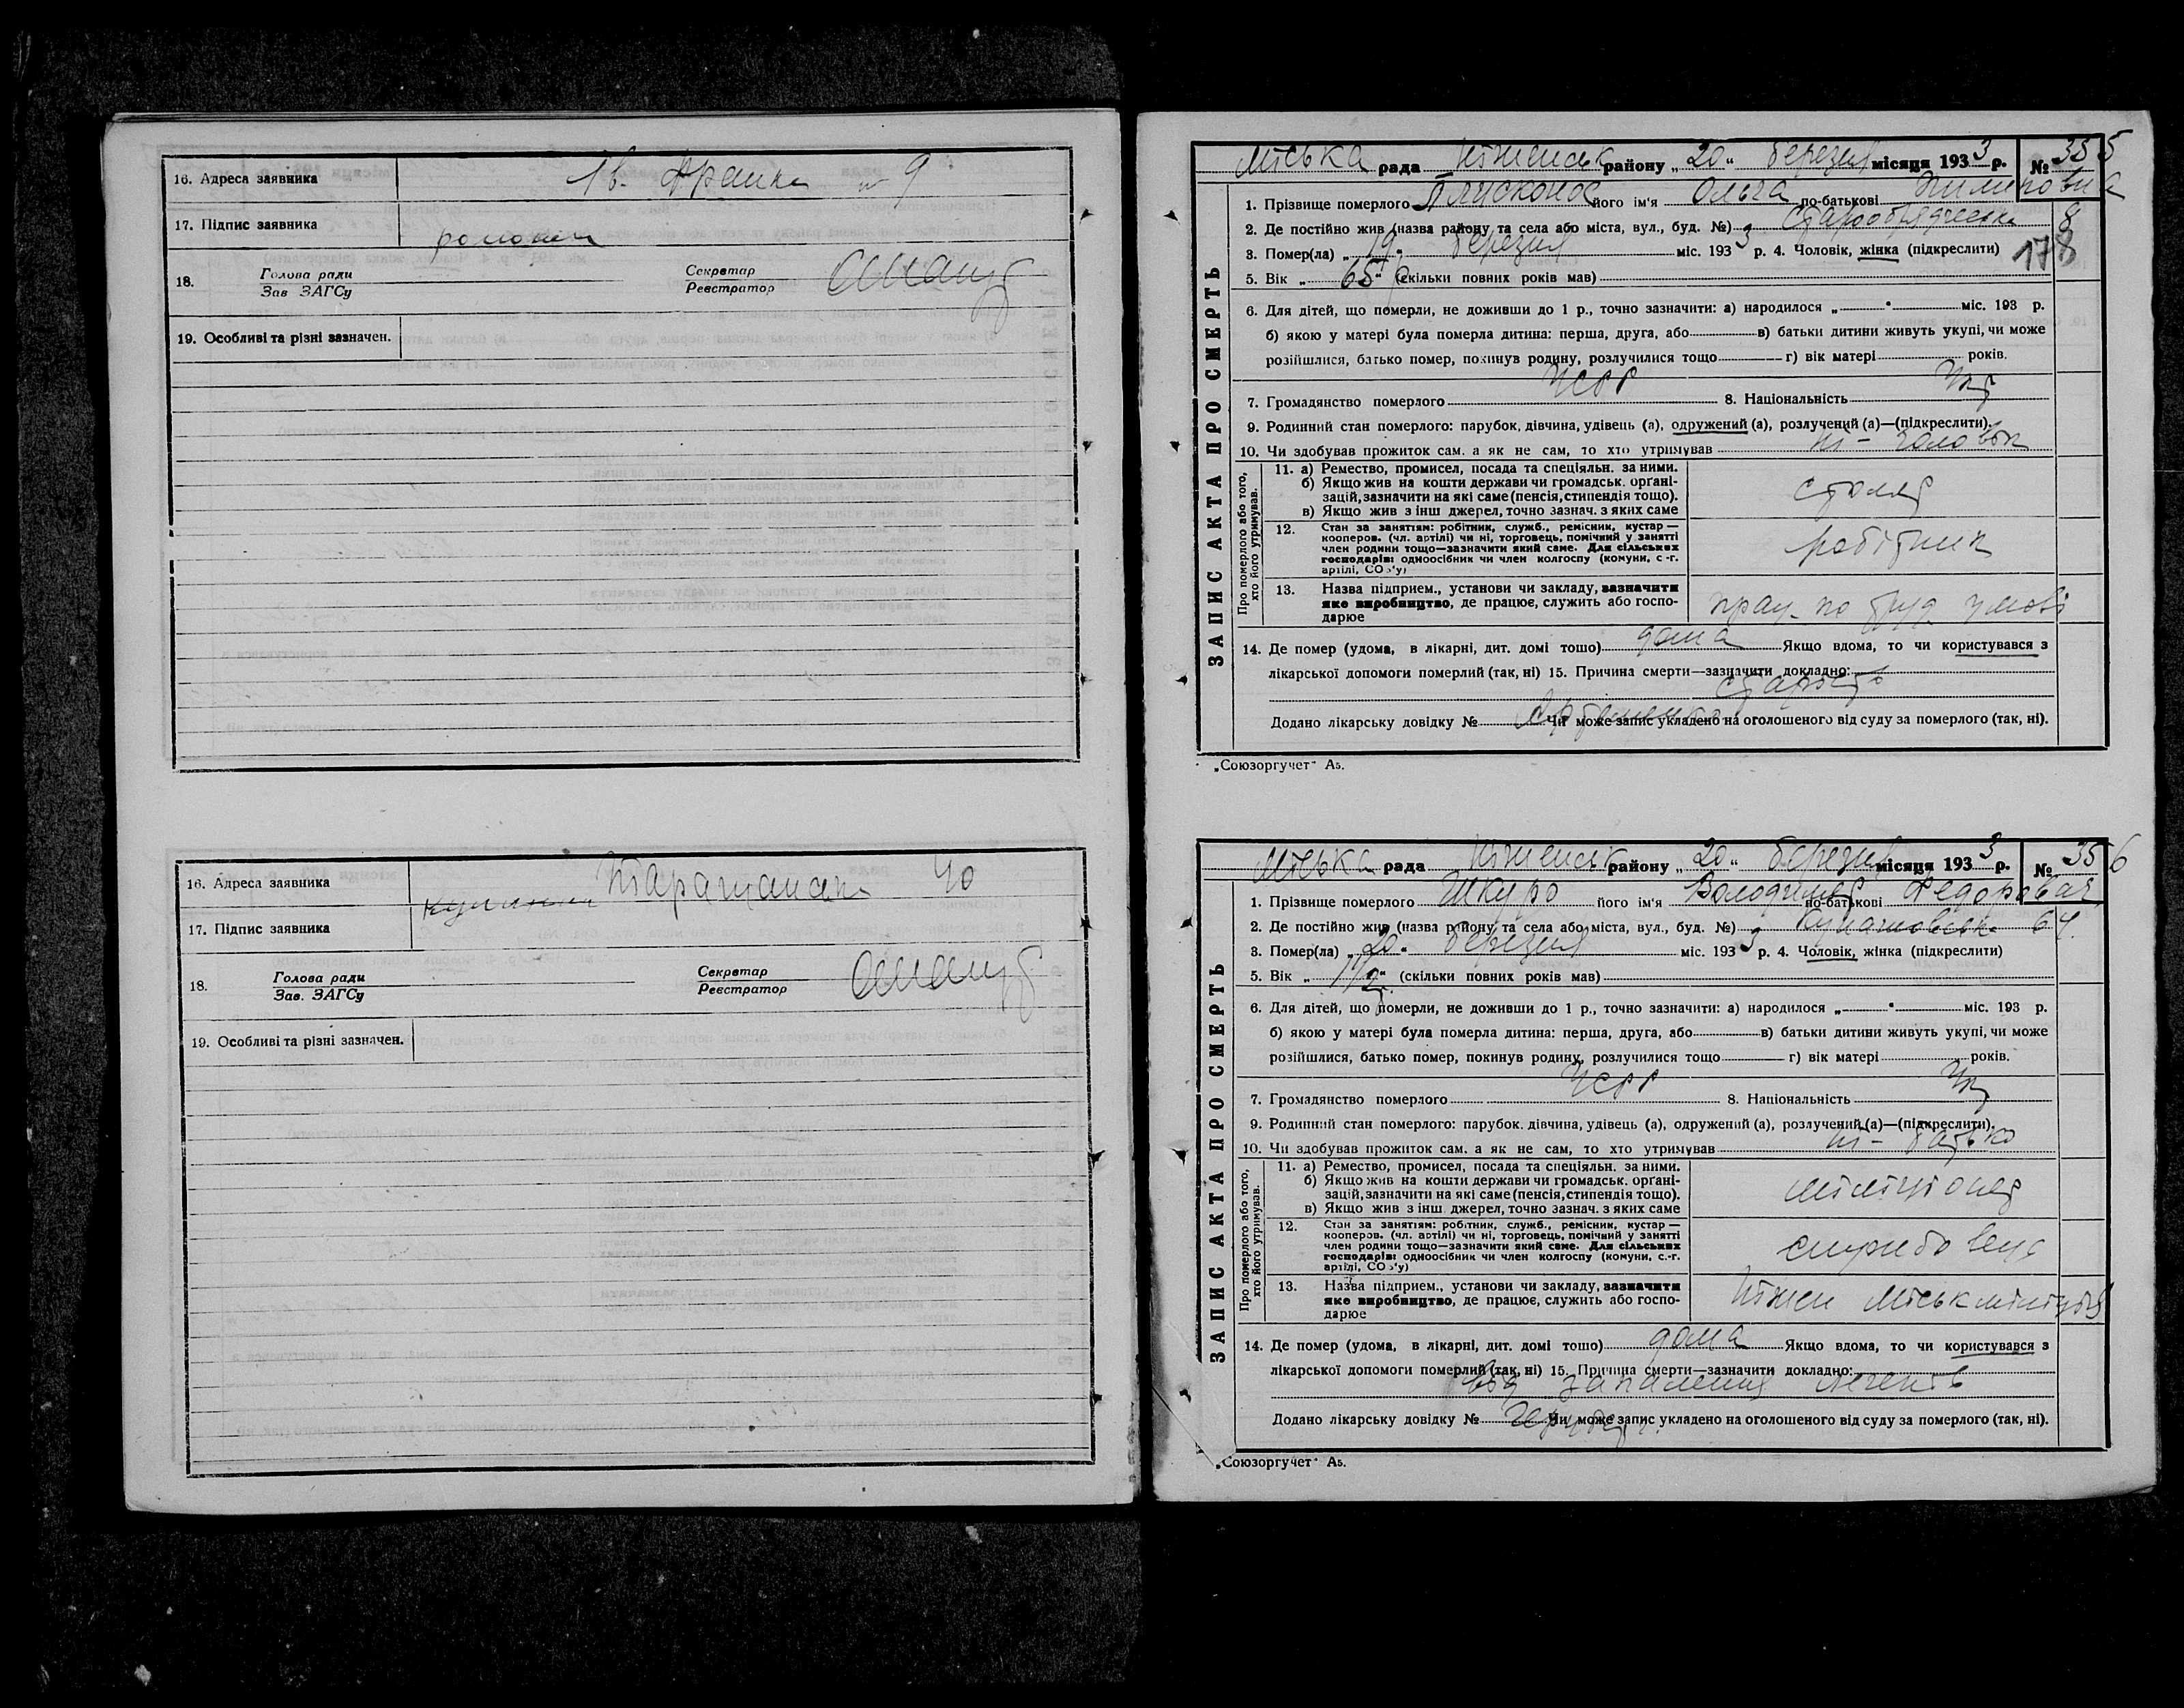 16. Адреса заявника Ів. Франка № 9
17. Підпис заявника
18. Голова ради Секретар
Зав ЗАГСу Реєстратор
19. Особливі та різні зазначен.
16. Адреса заявника 40
17. Підпис заявника
18. Голова ради Секретар
Зав. ЗАГСу Реєстратор
19. Особливі та різні зазначен.
ЗАПИС АКТА ПРО СМЕРТЬ
Міська рада Ніженськ району „20“ березня місяця 1933 р. № 355
1. Прізвище померлого Плисконос його ім'я Ольга по-батькові Пилиповна
2. Де постійно жив (назва району та села або міста, вул., буд. №) Старообрядческа 8
3. Помер(ла) „19“ березня міс. 1933 р. 4. Чоловік, жінка (підкреслити) 178
5. Вік „65“ (скільки повних років мав)
6. Для дітей, що померли, не доживши до 1 р., точно зазначити: а) народилося „ “ міс. 193 р.
б) якою у матері була померла дитина: перша, друга, або в) батьки дитини живуть укупі, чи може
розійшлися, батько помер, покинув родину, розлучилися тощо г) вік матері років.
7. Громадянство померлого УСРР 8. Національність Укр
9. Родинний стан померлого: парубок, дівчина, удівець (а), одружений (а), розлучений (а)—(підкреслити).
10. Чи здобував прожиток сам, а як не сам, то хто утримував ні - чоловік
Про померлого або того, хто його утримував.
11. а) Ремество, промисел, посада та спеціяльн. за ними.
б) Якщо жив на кошти держави чи громадськ. органі-
зацій, зазначити на які саме (пенсія, стипендія тощо).
в) Якщо жив з інш джерел, точно зазнач. з яких саме
столяр
12. Стан за занятям: робітник, служб., ремісник, кустар —
кооперов. (чл. артілі) чи ні, торговець, помічний у занятті
член родини тощо—зазначити який саме. Для сільських
господарів: одноосібник чи член колгоспу (комуни, с.-г.
артілі, СОЗ'у)
робітник
13. Назва підприєм., установи чи закладу, зазначити
яке виробництво, де працює, служить або госпо-
дарює
прац. по труд. умові
14. Де помер (удома, в лікарні, дит. домі тошо) дома Якщо вдома, то чи користувався з
лікарської допомоги померлий (так, ні) 15. Причина смерти—зазначити докладно:
старість
Додано лікарську довідку № Чи може запис укладено на оголошеного від суду за померлого (так, ні).
„Союзоргучет“ А5.
ЗАПИС АКТА ПРО СМЕРТЬ
Міська рада Ніженськ району „20“ березня місяця 1933 р. № 356
1. Прізвище померлого Шкуро його ім'я Володимир по-батькові Федорович
2. Де постійно жив (назва району та села або міста, вул., буд. №) Кунашовська 64.
3. Помер(ла) „20“ березня міс. 1933 р. 4. Чоловік, жінка (підкреслити)
5. Вік „1 1/2“ (скільки повних років мав)
6. Для дітей, що померли, не доживши до 1 р., точно зазначити: а) народилося „ “ міс. 193 р.
б) якою у матері була померла дитина: перша, друга, або в) батьки дитини живуть укупі, чи може
розійшлися, батько помер, покинув родину, розлучилися тощо г) вік матері років.
7. Громадянство померлого УСРР 8. Національність Укр
9. Родинний стан померлого: парубок, дівчина, удівець (а), одружений (а), розлучений (а)—(підкреслити).
10. Чи здобував прожиток сам, а як не сам, то хто утримував ні - батько
Про померлого або того, хто його утримував.
11. а) Ремество, промисел, посада та спеціяльн. за ними.
б) Якщо жив на кошти держави чи громадськ. органі-
зацій, зазначити на які саме (пенсія, стипендія тощо).
в) Якщо жив з інш. джерел, точно зазнач. з яких саме
міліціонер
12. Стан за занятям: робітник, служб., ремісник, кустар —
кооперов. (чл. артілі) чи ні, торговець, помічний у занятті
член родини тощо—зазначити який саме. Для сільських
господарів: одноосібник чи член колгоспу (комуни, с.-г.
артілі, СОЗ'у)
службовець
13. Назва підприєм., установи чи закладу, зазначити
яке виробництво, де працює, служить або госпо-
дарює
Ніжен міськміліція
14. Де помер (удома, в лікарні, дит. домі тошо) дома Якщо вдома, то чи користувався з
лікарської допомоги померлий (так, ні) 15. Причина смерти—зазначити докладно:
від запалення легенів
Додано лікарську довідку № Чи може запис укладено на оголошеного від суду за померлого (так, ні).
„Союзоргучет“ А5.